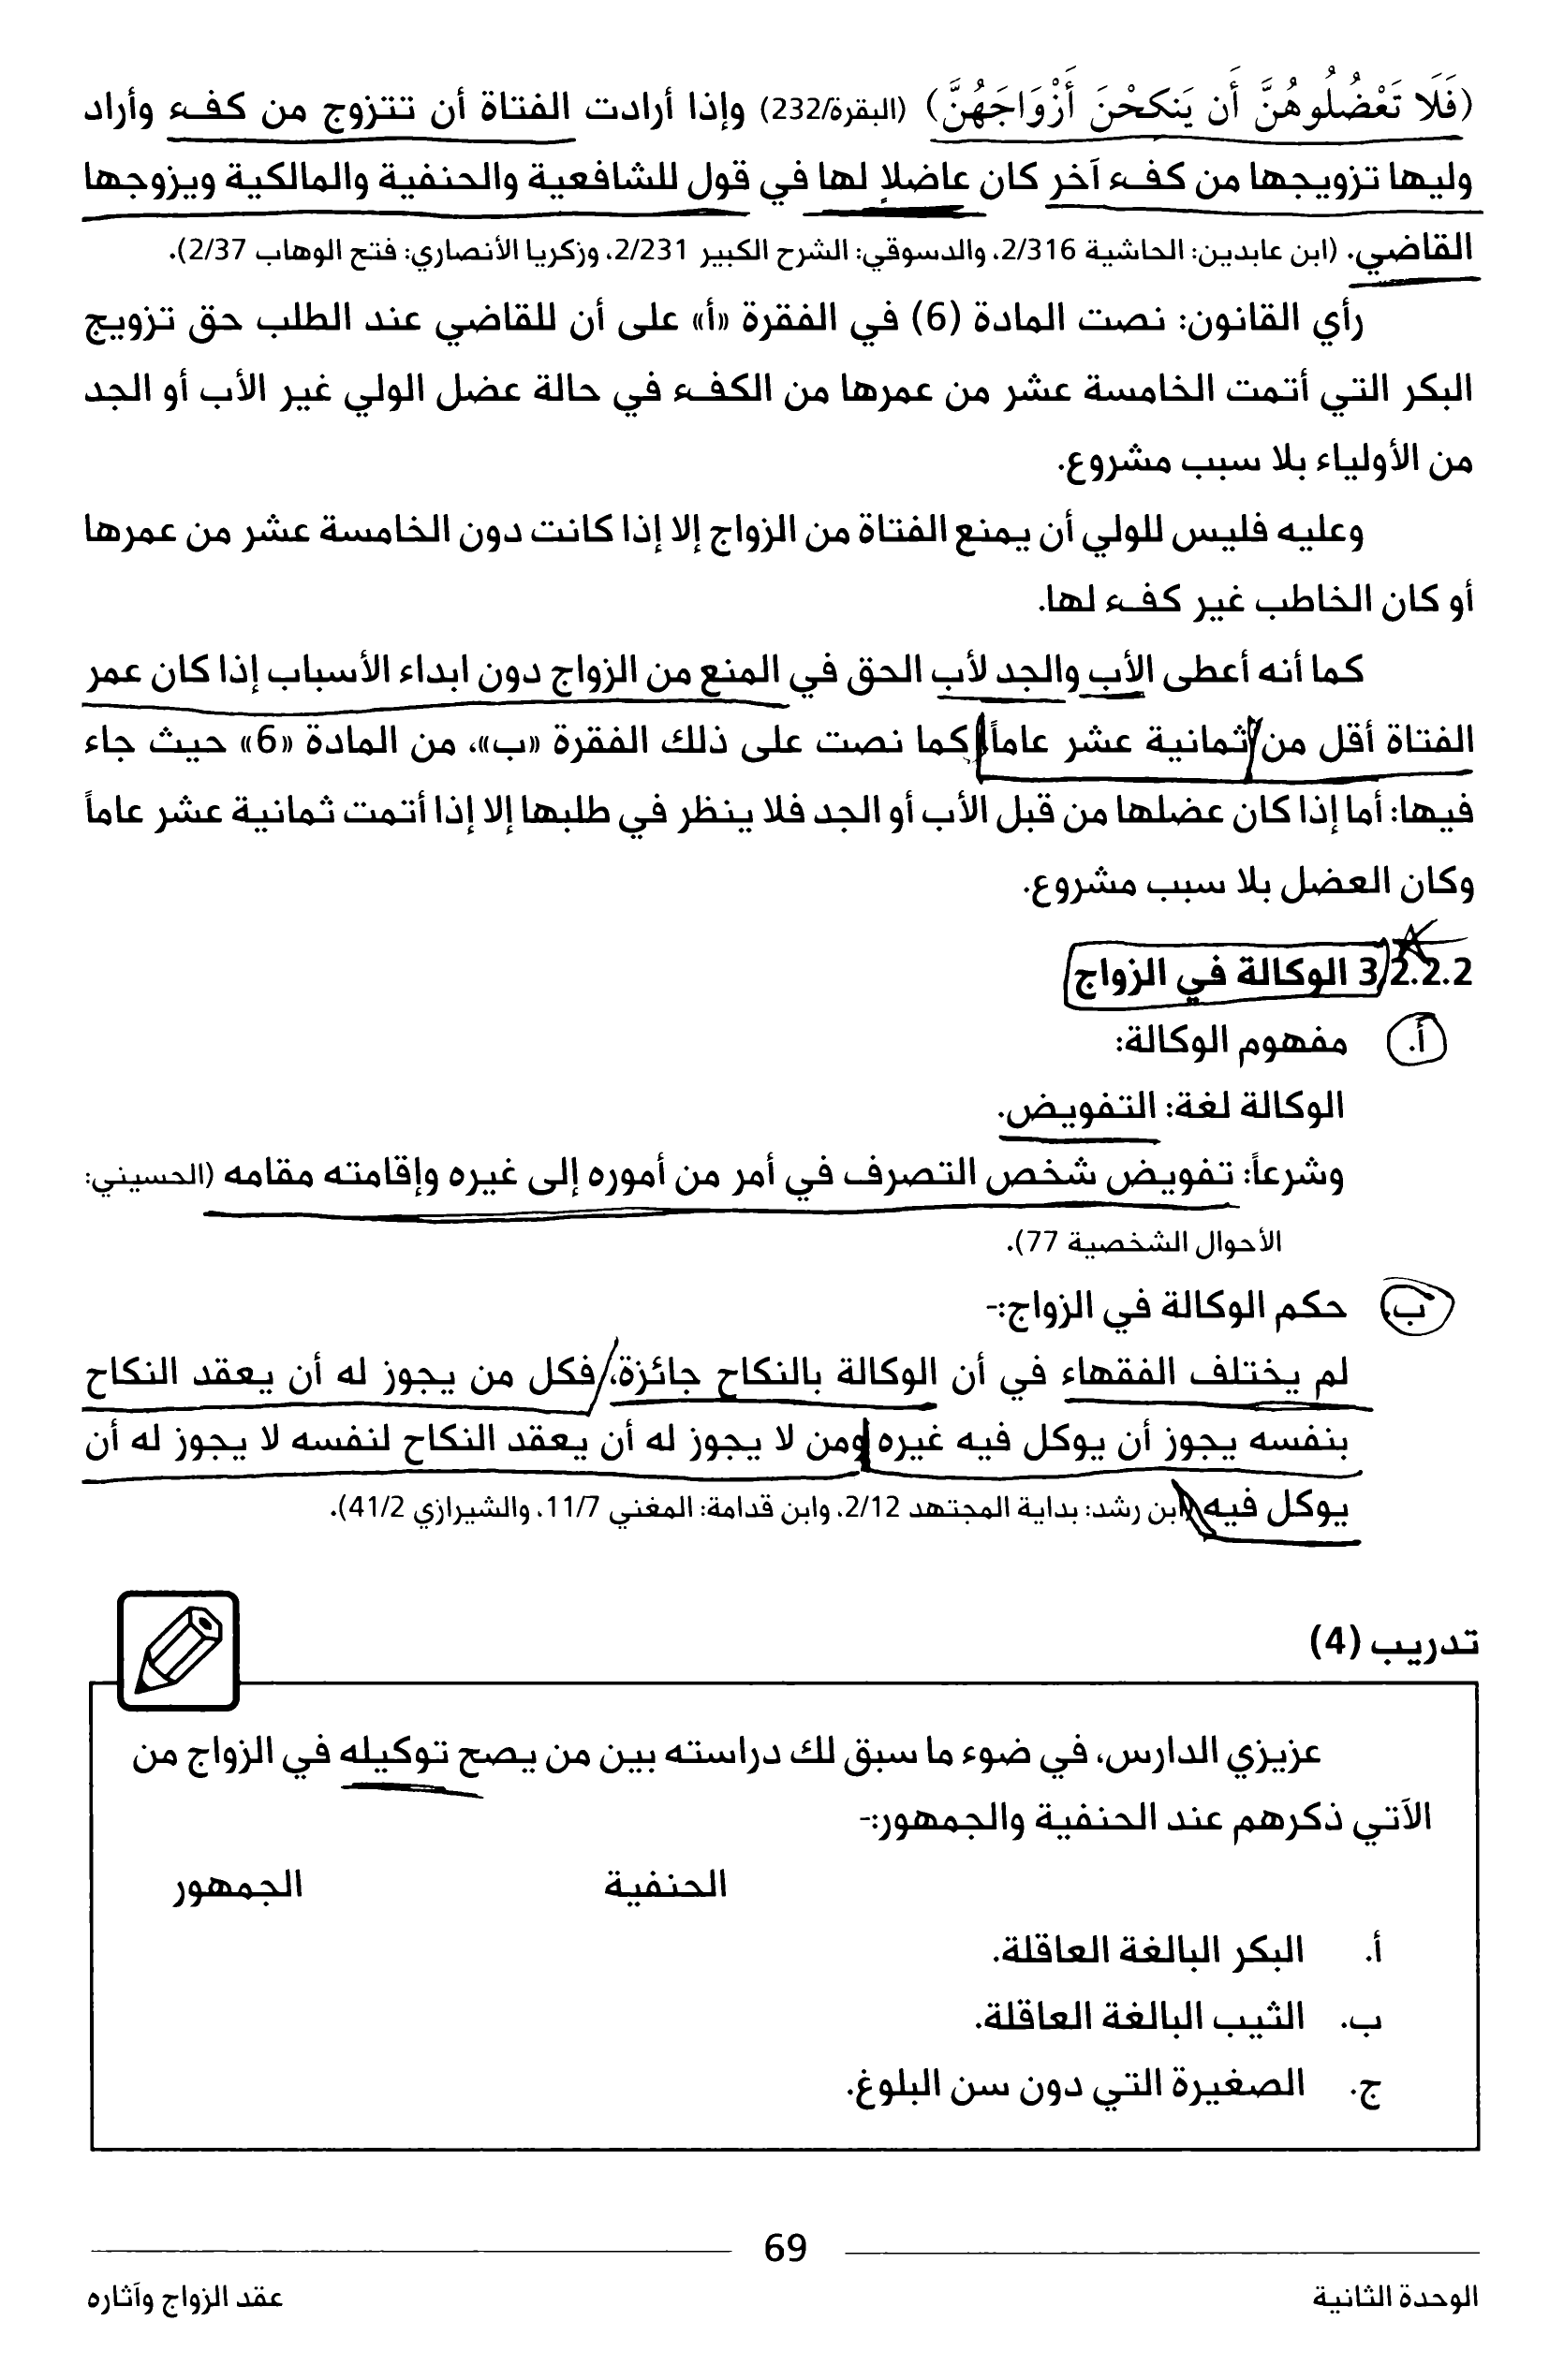 (فَلَا تَعْضُلُوهُنَّ أَن يَنكِحْنَ أَزْوَاجَهُنَّ) (البقرة/232) وإذا أرادت الفتاة أن تتزوج من كفء وأراد
وليها تزويجها من كفء آخر كان عاضلا لها في قول للشافعية والحنفية والمالكية ويزوجها
القاضي. (ابن عابدين: الحاشية 2/316، والدسوقي: الشرح الكبير 2/231، وزكريا الأنصاري: فتح الوهاب 2/37).
رأي القانون: نصت المادة (6) في الفقرة «أ» على أن للقاضي عند الطلب حق تزويج
البكر التي أتمت الخامسة عشر من عمرها من الكفء في حالة عضل الولي غير الأب أو الجد
من الأولياء بلا سبب مشروع.
وعليه فليس للولي أن يمنع الفتاة من الزواج إلا إذا كانت دون الخامسة عشر من عمرها
أو كان الخاطب غير كفء لها.
كما أنه أعطى الأب والجد لأب الحق في المنع من الزواج دون ابداء الأسباب إذا كان عمر
الفتاة أقل من ثمانية عشر عاماً كما نصت على ذلك الفقرة «ب»، من المادة «6» حيث جاء
فيها: أما إذا كان عضلها من قبل الأب أو الجد فلا ينظر في طلبها إلا إذا أتمت ثمانية عشر عاماً
وكان العضل بلا سبب مشروع.
3.2.2.2 الوكالة في الزواج
أ. مفهوم الوكالة:
الوكالة لغة: التفويض.
وشرعاً: تفويض شخص التصرف في أمر من أموره إلى غيره وإقامته مقامه (الحسيني:
الأحوال الشخصية 77).
ب. حكم الوكالة في الزواج:-
لم يختلف الفقهاء في أن الوكالة بالنكاح جائزة، فكل من يجوز له أن يعقد النكاح
بنفسه يجوز أن يوكل فيه غيره ومن لا يجوز له أن يعقد النكاح لنفسه لا يجوز له أن
يوكل فيه (ابن رشد: بداية المجتهد 2/12، وابن قدامة: المغني 11/7، والشيرازي 41/2).
تدريب (4)
عزيزي الدارس، في ضوء ما سبق لك دراسته بين من يصح توكيله في الزواج من
الآتي ذكرهم عند الحنفية والجمهور:-
الحنفية الجمهور
أ. البكر البالغة العاقلة.
ب. الثيب البالغة العاقلة.
ج. الصغيرة التي دون سن البلوغ.
69
الوحدة الثانية عقد الزواج وآثاره